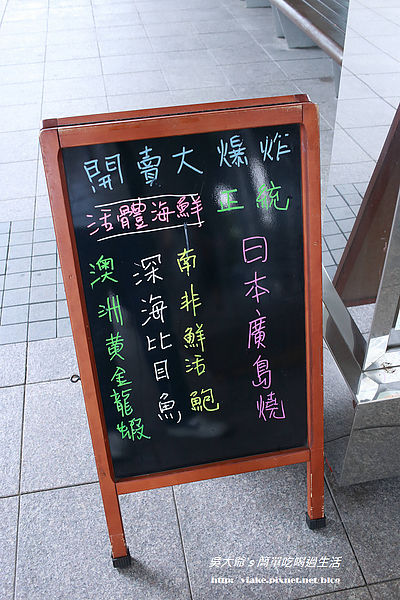 開賣大爆炸
活體海鮮 正統
日本廣島燒
南非鮮活鮑
深海比目魚
澳洲黃金龍蝦
吳大爺's 簡單吃喝過生活
http://viake.pixnet.net/blog